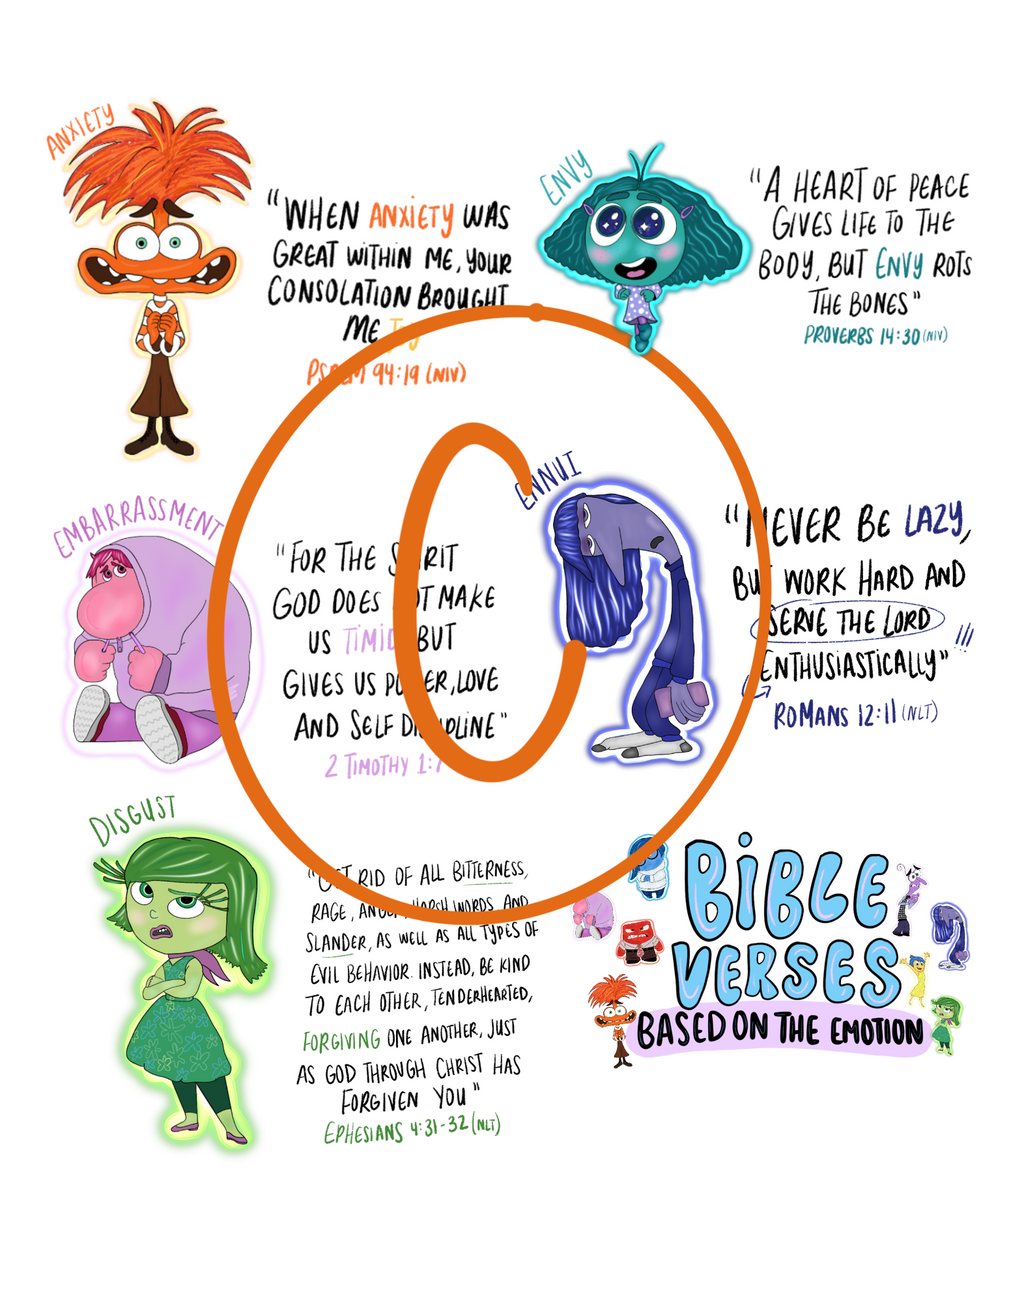 ANXIETY
"WHEN ANXIETY WAS
GREAT WITHIN ME, YOUR
CONSOLATION BROUGHT
ME Joy
PSALM 94:19 (NIV)
ENVY
"A HEART OF PEACE
GIVES LIFE TO THE
BODY, BUT ENVY ROTS
THE BONES"
PROVERBS 14:30 (NIV)
EMBARRASSMENT
"FOR THE SPIRIT
GOD DOES NOT MAKE
US TIMID BUT
GIVES US POWER, LOVE
AND SELF DISCIPLINE"
2 TIMOTHY 1:7
ENNUI
"NEVER BE LAZY,
BUT WORK HARD AND
SERVE THE LORD
ENTHUSIASTICALLY" !!!
ROMANS 12:11 (NLT)
C
DISGUST
"GET RID OF ALL BITTERNESS,
RAGE, ANGER, HARSH WORDS, AND
SLANDER, AS WELL AS ALL TYPES OF
EVIL BEHAVIOR. INSTEAD, BE KIND
TO EACH OTHER, TENDERHEARTED,
FORGIVING ONE ANOTHER, JUST
AS GOD THROUGH CHRIST HAS
FORGIVEN YOU"
EPHESIANS 4:31-32 (NLT)
BIBLE
VERSES
BASED ON THE EMOTION